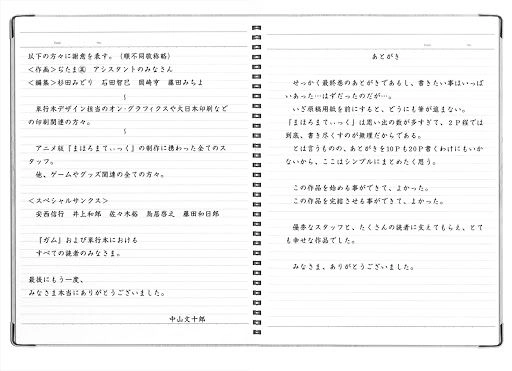 あとがき
せっかく最終巻のあとがきであるし、書きたい事はいっぱ
いあった…はずだったのだが…。
いざ原稿用紙を前にすると、どうにも筆が進まない。
『まほろまてぃっく』は思い出の数が多すぎて、２Ｐ程では
到底、書き尽くすのが無理だからである。
とは言うものの、あとがきを10Ｐも20Ｐ書くわけにもいか
ないから、ここはシンプルにまとめたく思う。
この作品を始める事ができて、よかった。
この作品を完結させる事ができて、よかった。
優秀なスタッフと、たくさんの読者に支えてもらえ、とて
も幸せな作品でした。
みなさま、ありがとうございました。
以下の方々に謝意を表す。（順不同敬称略）
＜作画＞ぢたま アシスタントのみなさん
＜編集＞杉田みどり 石田智巳 岡崎亨 藤田みちよ
～
単行本デザイン担当のオン・グラフィクスや大日本印刷など
の印刷関連の方々。
～
アニメ版『まほろまてぃっく』の制作に携わった全てのス
タッフ。
他、ゲームやグッズ関連の全ての方々。
＜スペシャルサンクス＞
安西信行 井上和郎 佐々木裕 鳥居啓之 藤田和日郎
『ガム』および単行本における
すべての読者のみなさま。
最後にもう一度、
みなさま本当にありがとうございました。
中山文十郎